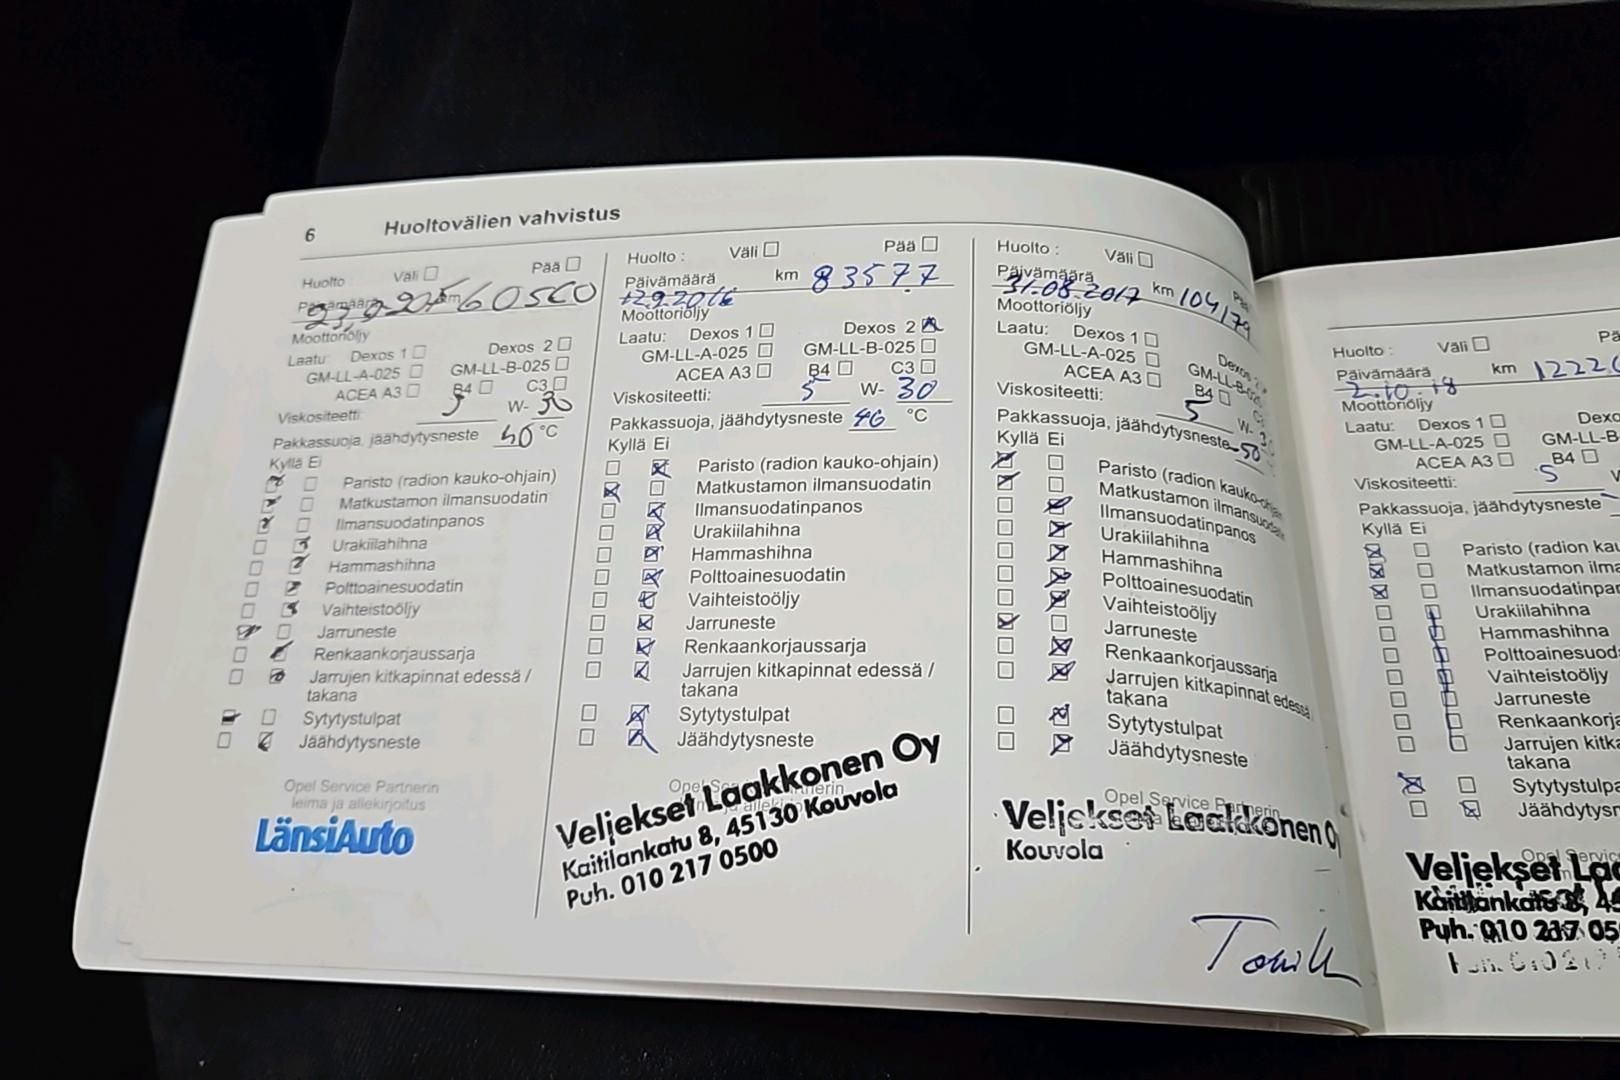 6 Huoltovälien vahvistus
Huolto : Väli Pää
Päivämäärä km 60500
Moottoriöljy
Laatu: Dexos 1 Dexos 2
GM-LL-A-025 GM-LL-B-025
ACEA A3 B4 C3
Viskositeetti: 5 W- 30
Pakkassuoja, jäähdytysneste 40 °C
Kyllä Ei
Paristo (radion kauko-ohjain)
Matkustamon ilmansuodatin
Ilmansuodatinpanos
Urakiilahihna
Hammashihna
Polttoainesuodatin
Vaihteistoöljy
Jarruneste
Renkaankorjaussarja
Jarrujen kitkapinnat edessä /
takana
Sytytystulpat
Jäähdytysneste
Opel Service Partnerin
leima ja allekirjoitus
LänsiAuto
Huolto : Väli Pää
Päivämäärä km 83577
12.9.2016
Moottoriöljy
Laatu: Dexos 1 Dexos 2
GM-LL-A-025 GM-LL-B-025
ACEA A3 B4 C3
Viskositeetti: 5 W- 30
Pakkassuoja, jäähdytysneste 46 °C
Kyllä Ei
Paristo (radion kauko-ohjain)
Matkustamon ilmansuodatin
Ilmansuodatinpanos
Urakiilahihna
Hammashihna
Polttoainesuodatin
Vaihteistoöljy
Jarruneste
Renkaankorjaussarja
Jarrujen kitkapinnat edessä /
takana
Sytytystulpat
Jäähdytysneste
Veljekset Laakkonen Oy
Kaitilankatu 8, 45130 Kouvola
Puh. 010 217 0500
Huolto : Väli
Päivämäärä km 104179
31.08.2017
Moottoriöljy
Laatu: Dexos 1 Dexos
GM-LL-A-025 GM-LL-B-025
ACEA A3 B4
Viskositeetti: 5 W-
Pakkassuoja, jäähdytysneste -50
Kyllä Ei
Paristo (radion kauko-ohjain
Matkustamon ilmansuodatin
Ilmansuodatinpanos
Urakiilahihna
Hammashihna
Polttoainesuodatin
Vaihteistoöljy
Jarruneste
Renkaankorjaussarja
Jarrujen kitkapinnat edessä
takana
Sytytystulpat
Jäähdytysneste
Opel Service Partnerin
Veljekset Laakkonen O
Kouvola
Huolto : Väli Pä
Päivämäärä km 1222
2.10.18
Moottoriöljy
Laatu: Dexos 1 Dexo
GM-LL-A-025 GM-LL-B
ACEA A3 B4
Viskositeetti: 5
Pakkassuoja, jäähdytysneste
Kyllä Ei
Paristo (radion kau
Matkustamon ilma
Ilmansuodatinpan
Urakiilahihna
Hammashihna
Polttoainesuod
Vaihteistoöljy
Jarruneste
Renkaankorja
Jarrujen kitk
takana
Sytytystulpa
Jäähdytysn
Veljekset La
Kaitilankatu 8, 45
Puh. 010 217 05